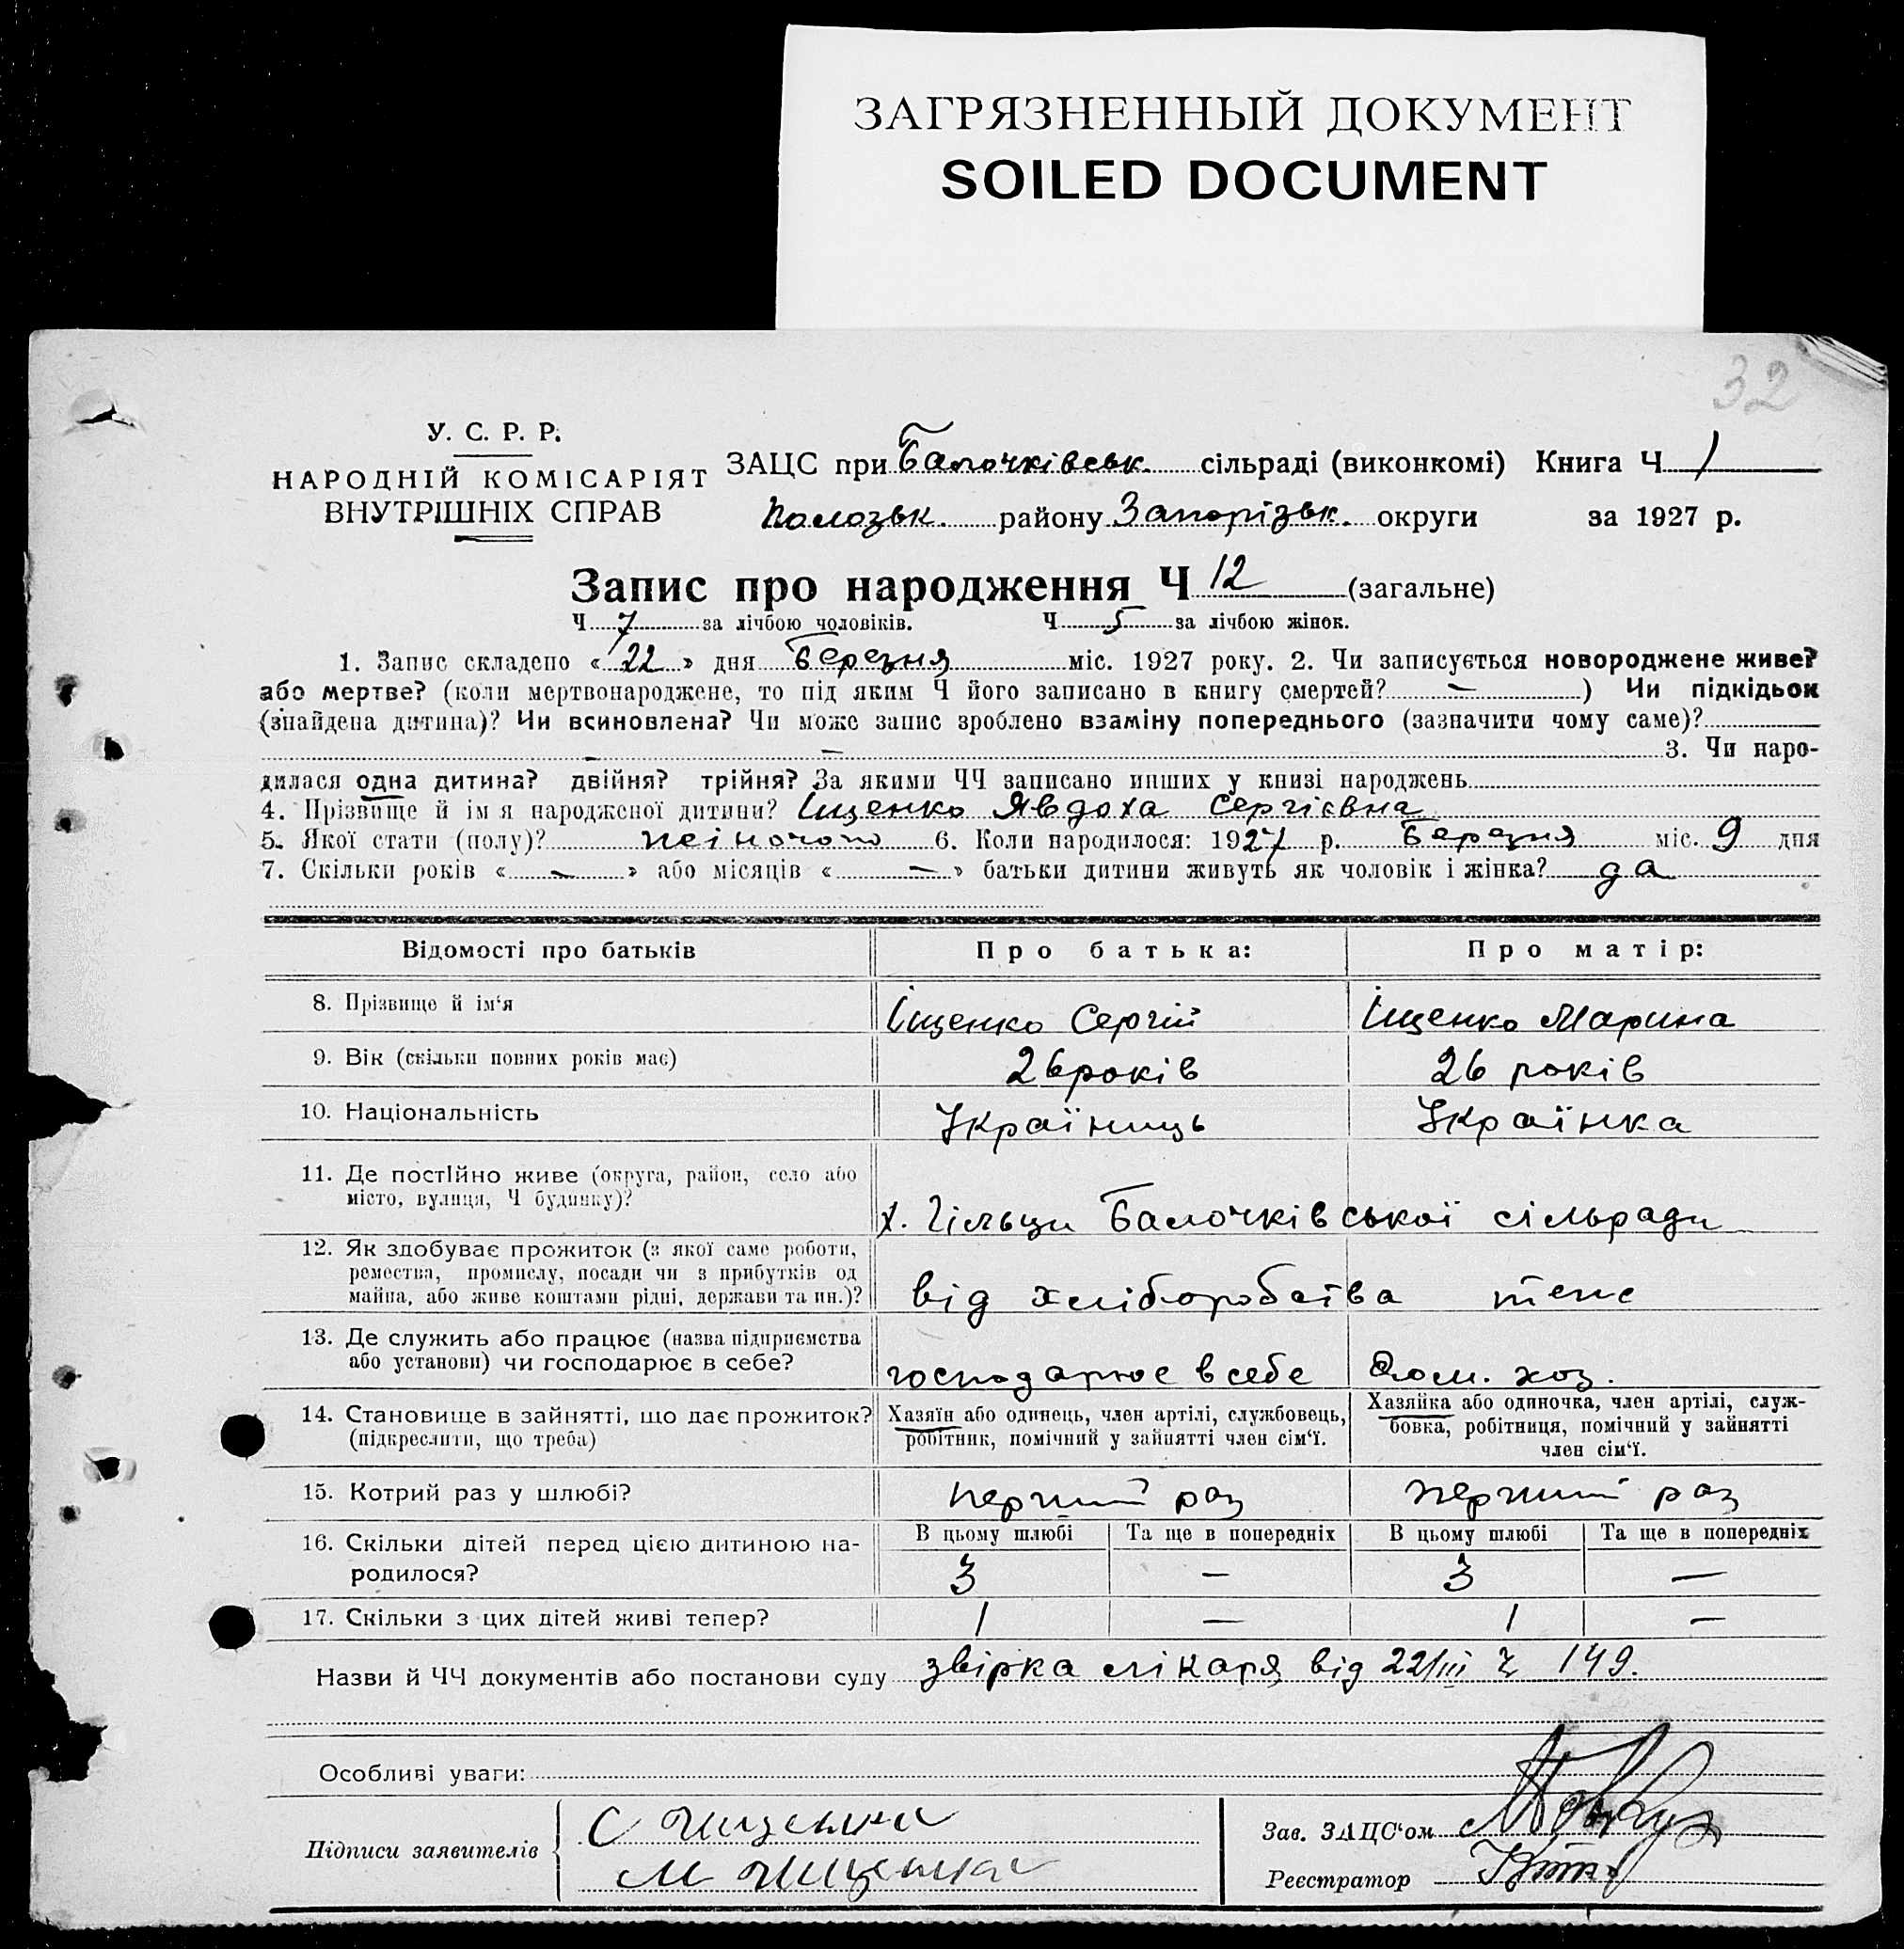 ЗАГРЯЗНЕННЫЙ ДОКУМЕНТ
SOILED DOCUMENT
32
У. С. Р. Р.
НАРОДНІЙ КОМІСАРІЯТ
ВНУТРІШНІХ СПРАВ
ЗАЦС при Балочківськ. сільраді (виконкомі) Книга Ч 1
Пологзьк. району Запорізьк. округи за 1927 р.
Запис про народження Ч 12 (загальне)
Ч 7 за лічбою чоловіків. Ч 5 за лічбою жінок.
1. Запис складено « 22 » дня Березня міс. 1927 року. 2. Чи записується новороджене живе?
або мертве? (коли мертвонароджене, то під яким Ч його записано в книгу смертей? — ) Чи підкідьок
(знайдена дитина)? Чи всиновлена? Чи може запис зроблено взаміну попереднього (зазначити чому саме)?
— — 3. Чи наро-
дилася одна дитина? двійня? трійня? За якими ЧЧ записано инших у книзі народжень
4. Прізвище й ім я народженої дитини? Іщенко Явдоха Сергієвна
5. Якої стати (полу)? жіночого 6. Коли народилося: 1927 р. Березня міс. 9 дня
7. Скільки років « — » або місяців « — » батьки дитини живуть як чоловік і жінка? да
Відомості про батьків Про батька: Про матір:
8. Прізвище й ім‘я Іщенко Сергій Іщенко Марина
9. Вік (скільки повних років має) 26 років 26 років
10. Національність Українць Українка
11. Де постійно живе (округа, район, село або
місто, вулиця, Ч будинку)? х. Гільци Балочківської сільради
12. Як здобуває прожиток (з якої саме роботи,
ремества, промислу, посади чи з прибутків од
майна, або живе коштами рідні, держави та ин.)? від хліборобства теж
13. Де служить або працює (назва підприємства
або установи) чи господарює в себе? господарює в себе Дом. хоз.
14. Становище в зайнятті, що дає прожиток?
(підкреслити, що треба)
Хазяїн або одинець, член артілі, службовець,
робітник, помічний у зайнятті член сім‘ї.
Хазяйка або одиночка, член артілі, служ-
бовка, робітниця, помічний у зайнятті
член сім‘ї.
15. Котрий раз у шлюбі? перший раз перший раз
16. Скільки дітей перед цією дитиною на-
родилося?
В цьому шлюбі Та ще в попередніх В цьому шлюбі Та ще в попередніх
3 — 3 —
17. Скільки з цих дітей живі тепер? 1 — 1 —
Назви й ЧЧ документів або постанови суду звірка лікаря від 22/III Ч 149.
Особливі уваги:
Підписи заявителів
С Іищенко
М Іищенко
Зав. ЗАЦС‘ом
Реєстратор